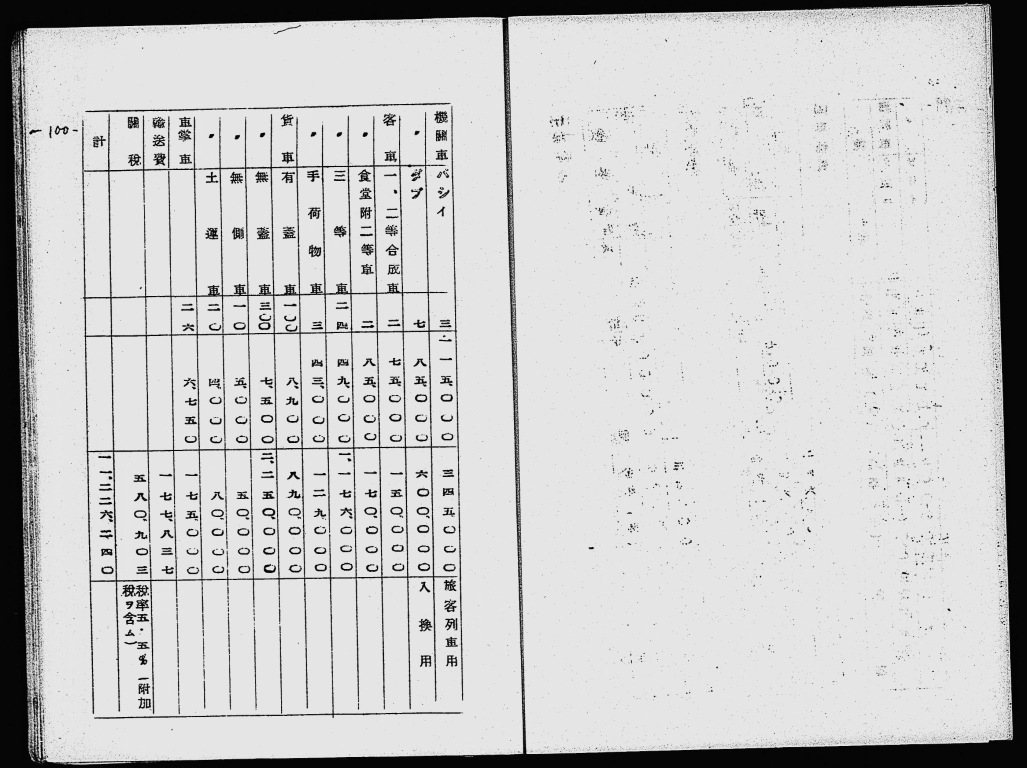 機關車 パシイ 三 一一五、〇〇〇 三四五、〇〇〇 旅客列車用
〃 七 八五、〇〇〇 六〇〇、〇〇〇 入換用
客車 一、二等合成車 二 七五、〇〇〇 一五〇、〇〇〇
〃 食堂附二等車 二 八五、〇〇〇 一七〇、〇〇〇
〃 三等車 二四 四九、〇〇〇 一、一七六、〇〇〇
〃 手荷物車 三 四三、〇〇〇 一二九、〇〇〇
貨車 有蓋車 一〇〇 八、九〇〇 八九〇、〇〇〇
〃 無蓋車 三〇〇 七、五〇〇 二、二五〇、〇〇〇
〃 無側車 一〇 五、〇〇〇 五〇、〇〇〇
〃 土運車 二〇 四、〇〇〇 八〇、〇〇〇
車掌車 二六 六、七五〇 一七五、〇〇〇
輸送費 一七七、八三七
關税 五八〇、九〇三 税率五・五%(附加
税ヲ含ム)
計 一一、二二六、二四〇
-100-